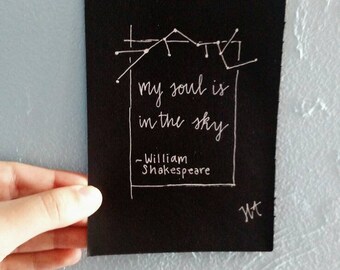 my soul is
in the sky
~William
Shakespeare